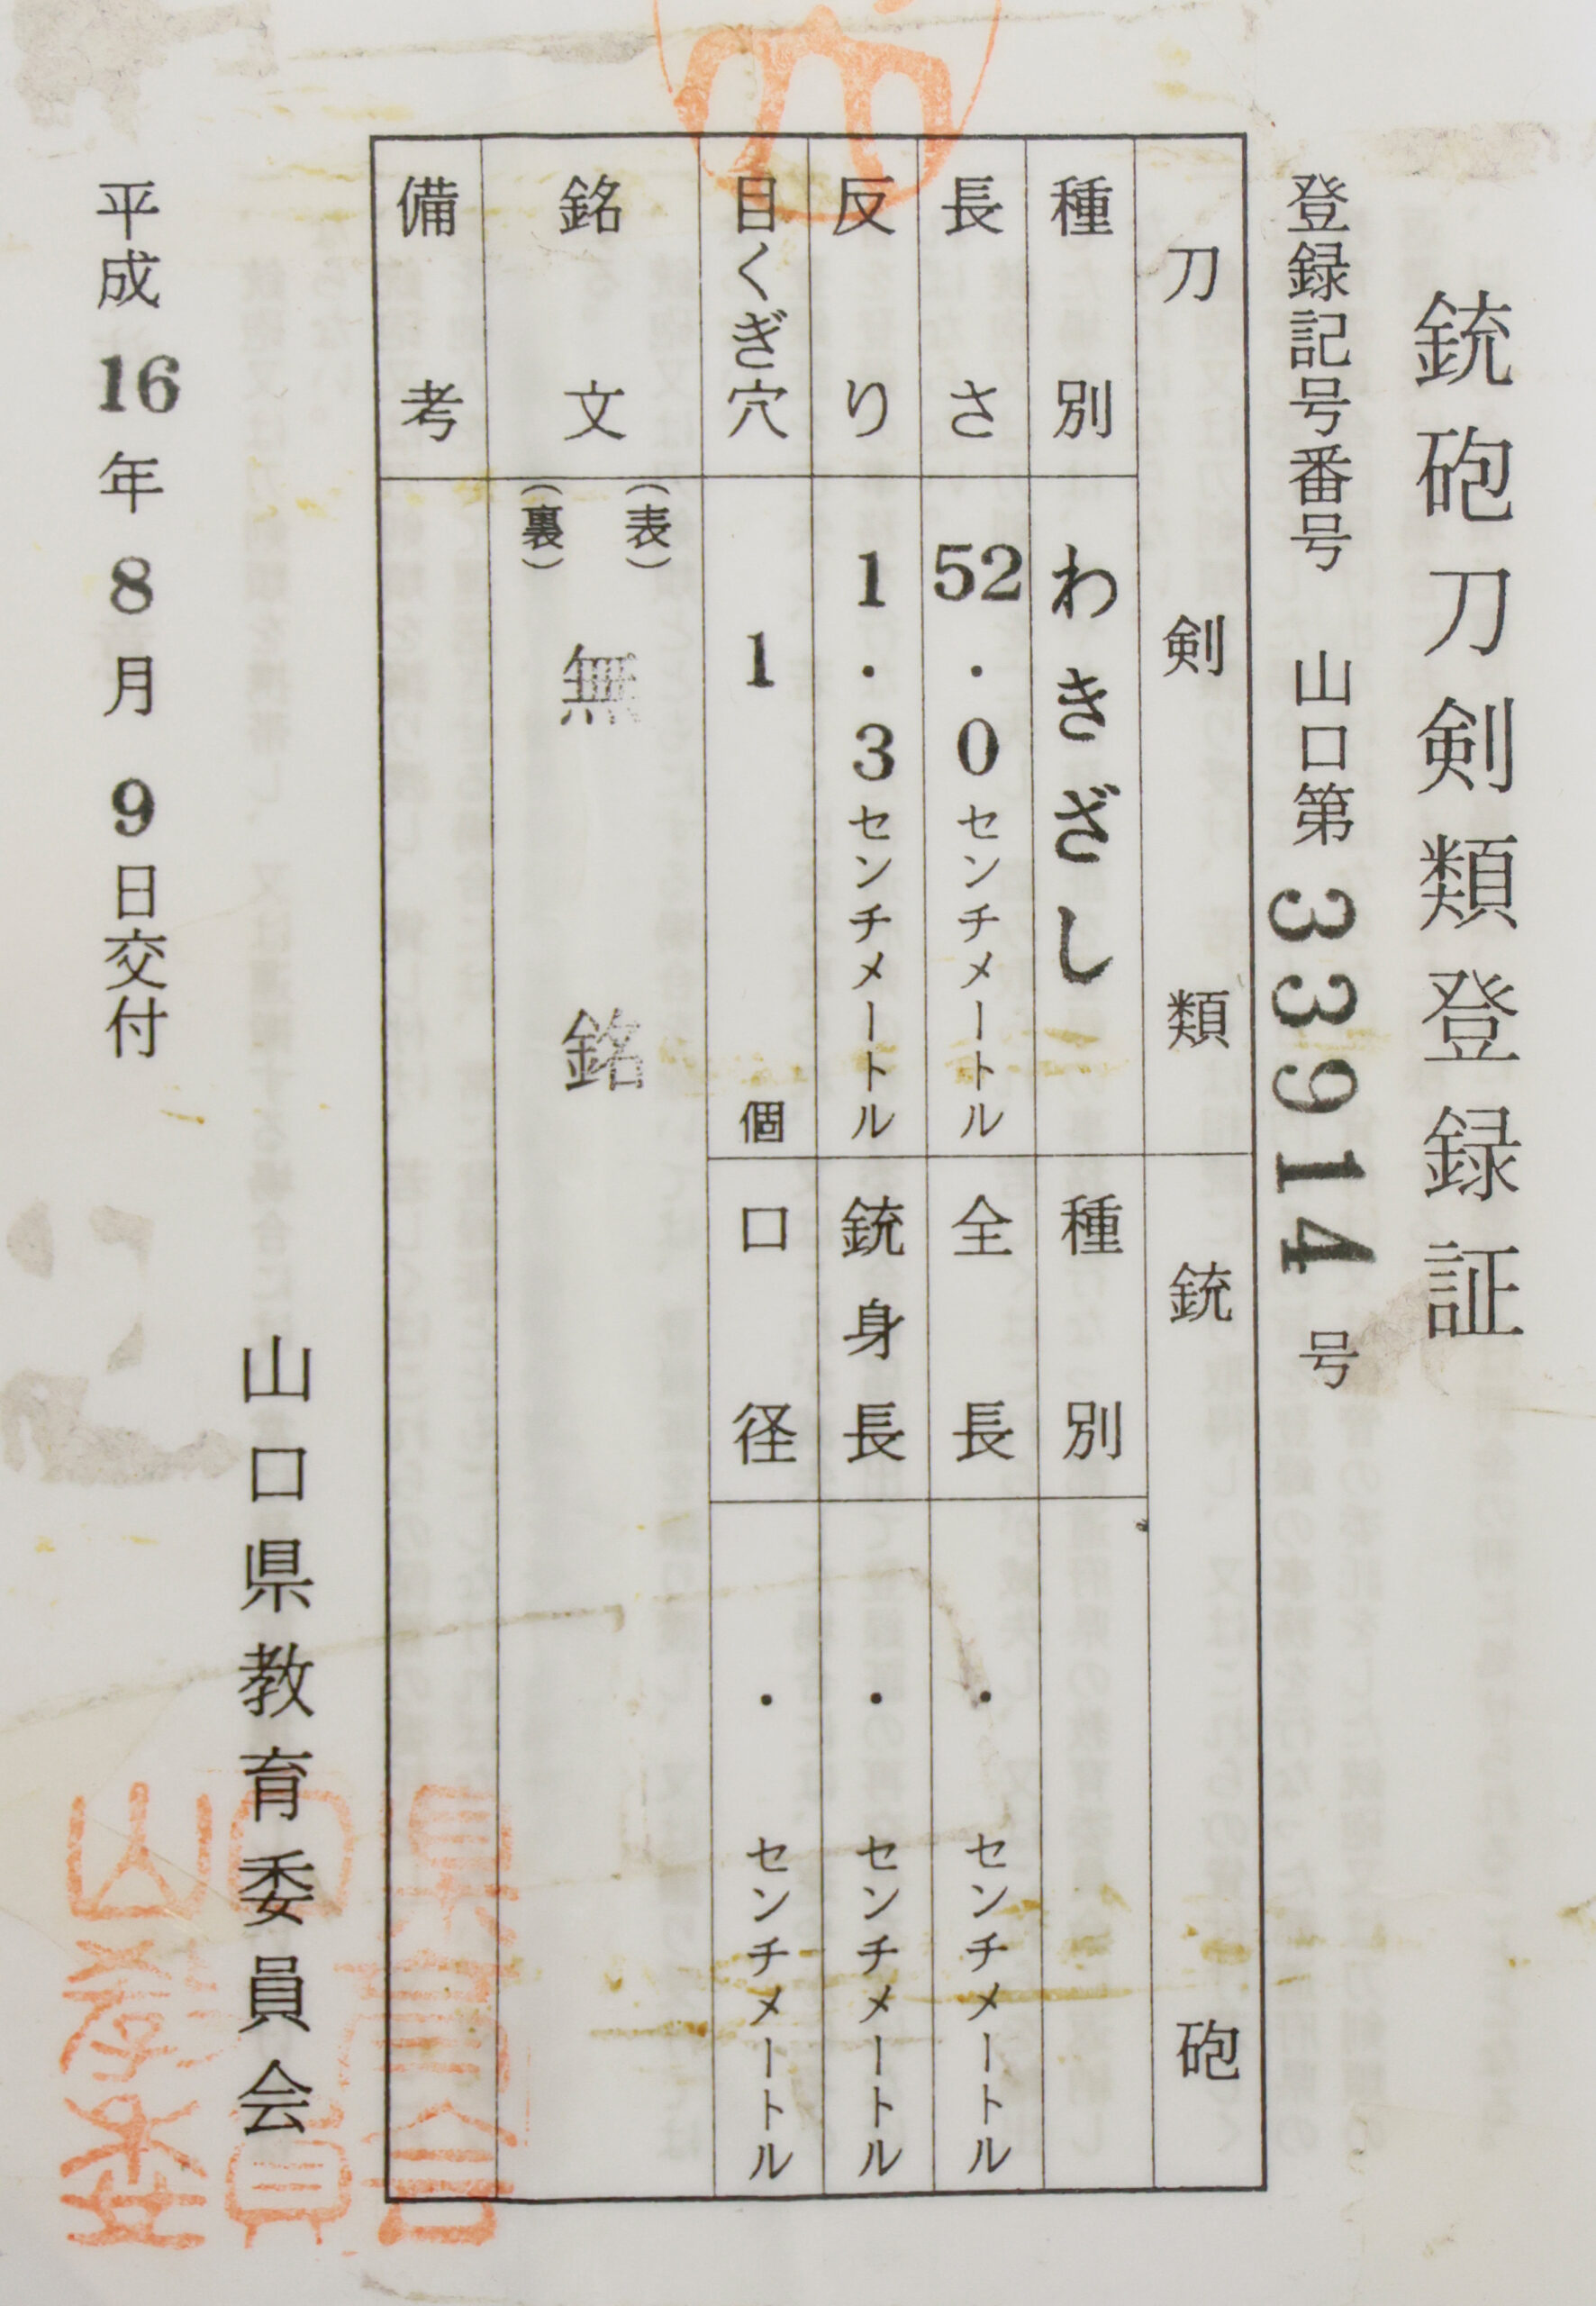 銃砲刀剣類登録証
登録記号番号 山口第33914号
刀剣類
銃砲
種別
わきざし
種別
長さ
52.0センチメートル
全長
・センチメートル
反り
1.3センチメートル
銃身長
・センチメートル
目くぎ穴
1個
口径
・センチメートル
銘文
(表)
(裏)
無銘
備考
山口県教育委員会
平成16年8月9日交付